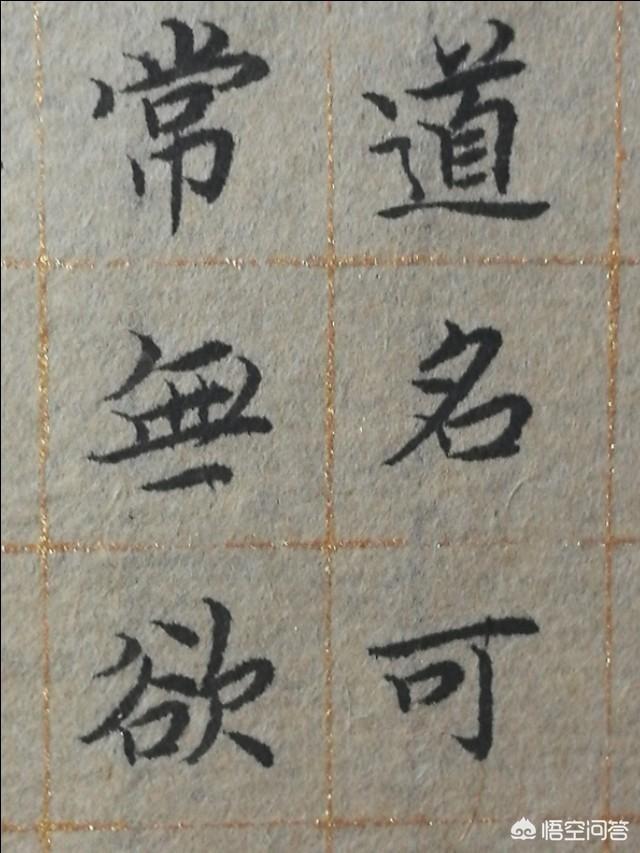 道名可
常無欲
悟空问答